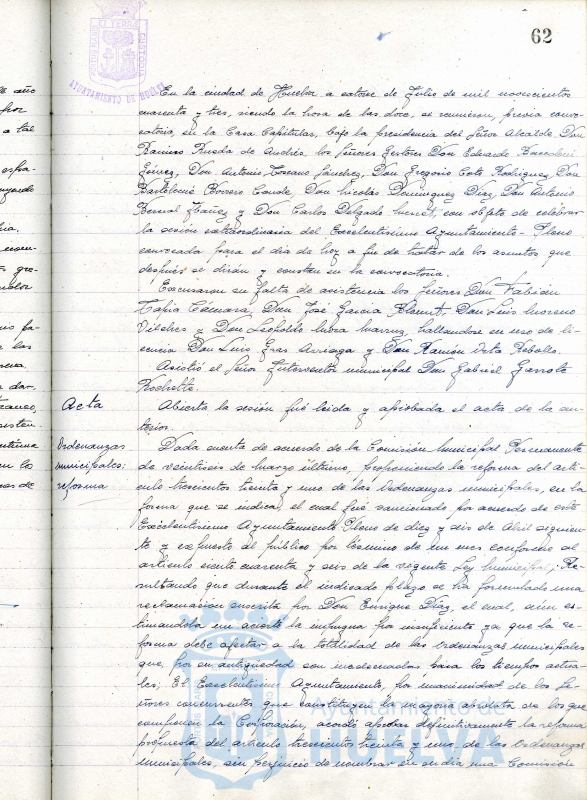 62
PORTUS MARIS ET TERRAE CUSTODIA
AYUNTAMIENTO DE HUELVA
En la ciudad de Huelva a catorce de Julio de mil novecientos
cuarenta y tres, siendo la hora de las doce, se reunieron, previa convo-
catoria, en la Casa Capitular, bajo la presidencia del Señor Alcalde Don
Ramiro Rueda de Andrés, los Señores Gestores Don Eduardo
Gómez, Don Antonio Toscano Sánchez, Don Gregorio Rodríguez, Don
Bartolomé Borrero Conde, Don Nicolás Domínguez Díaz, Don Antonio
Bernal Ibáñez y Don Carlos Delgado con objeto de celebrar
la sesión extraordinaria del Excelentísimo Ayuntamiento-Pleno
convocada para el día de hoy a fin de tratar de los asuntos que
después se dirán y constan en la convocatoria.
Excusaron su falta de asistencia los Señores Don Fabián
Tapia Cámara, Don José García Don Luis Moreno
Vilches y Don Leopoldo hallándose en uso de li-
cencia Don Luis Gras Arriaga y Don Ramón Rebollo.
Asistió el Señor Interventor municipal Don Gabriel Garrote
Acta
Abierta la sesión fué leída y aprobada el acta de la an-
terior.
Ordenanzas
municipales:
reforma
Dada cuenta de acuerdo de la Comisión Municipal Permanente
de veintiseis de marzo último, proponiendo la reforma del artí-
culo trescientos treinta y uno de las Ordenanzas municipales, en la
forma que se indica, el cual fué sancionado por acuerdo de este
Excelentísimo Ayuntamiento Pleno de diez y seis de Abril siguien-
te y expuesto al público por término de un mes conforme al
artículo ciento cuarenta y seis de la vigente Ley Municipal; Re-
sultando que durante el indicado plazo se ha formulado una
reclamación suscrita por Don Enrique Díaz, el cual, aún es-
timándola un acierto la impugna por insuficiente ya que la re-
forma debe afectar a la totalidad de las Ordenanzas municipales
que, por su antigüedad son inadecuadas para los tiempos actua-
les; El Excelentísimo Ayuntamiento, por unanimidad de los Se-
ñores concurrentes que constituyen la mayoría absoluta de los que
componen la Corporación, acordó aprobar definitivamente la reforma
propuesta del artículo trescientos treinta y uno de las Ordenanzas
Municipales, sin perjuicio de nombrar en su día una Comisión
Ayuntamiento de
HUELVA